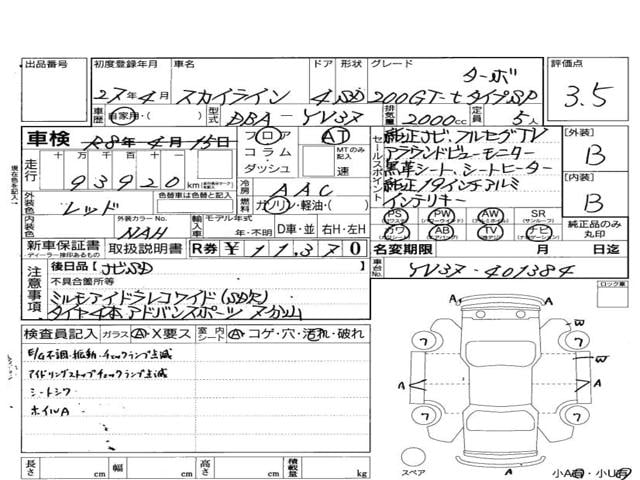 出品番号 初度登録年月 車名 ドア 形状 グレード 評価点
27年4月 スカイライン 4 SD 200GT-t タイプSP ターボ 3.5
車歴 自家用・( ) 型式 DBA-YV37 排気量 2000cc 定員 5人
車検 R8年4月15日 フロア コラム・ダッシュ AT MTのみ記入 速
走行 十万 万 千 百 十 一
93920 km
現在色を記入→
外装色 レッド 色替車は色替と記入
内装色 外装カラーNo. NAH
冷房 AAC
燃料 ガソリン・軽油・( )
輸入車 モデル年式 年・不明 D車・並 右H・左H
セールスポイント
純正ナビ、フルセグTV
アラウンドビューモニター
黒革シート、シートヒーター
純正19インチアルミ
インテリキー
[外装] B
[内装] B
PS PW AW SR
カワ AB TV ナビ
純正品のみ丸印
新車保証書 取扱説明書 R券 ¥11,370
ディーラー捺印あるもの
名変期限 月 日迄
車台No. YV37-401384
注意事項
後日品〔ナビSD〕
不具合箇所等
ミルモアイドラレコワイド(SD欠)
タイヤ4本アドバンスポーツ
ロック車
検査員記入 ガラス A・X要ス 室内シート A・コゲ・穴・汚れ・破れ
E/G不調・振動・チェックランプ点滅
アイドリングストップチェックランプ点滅
シートシワ
ホイルA
W
W
A A A
7 7
7 7
A
スペア
小A有・小U有
長さ cm 幅 cm 高さ cm 積載量 kg